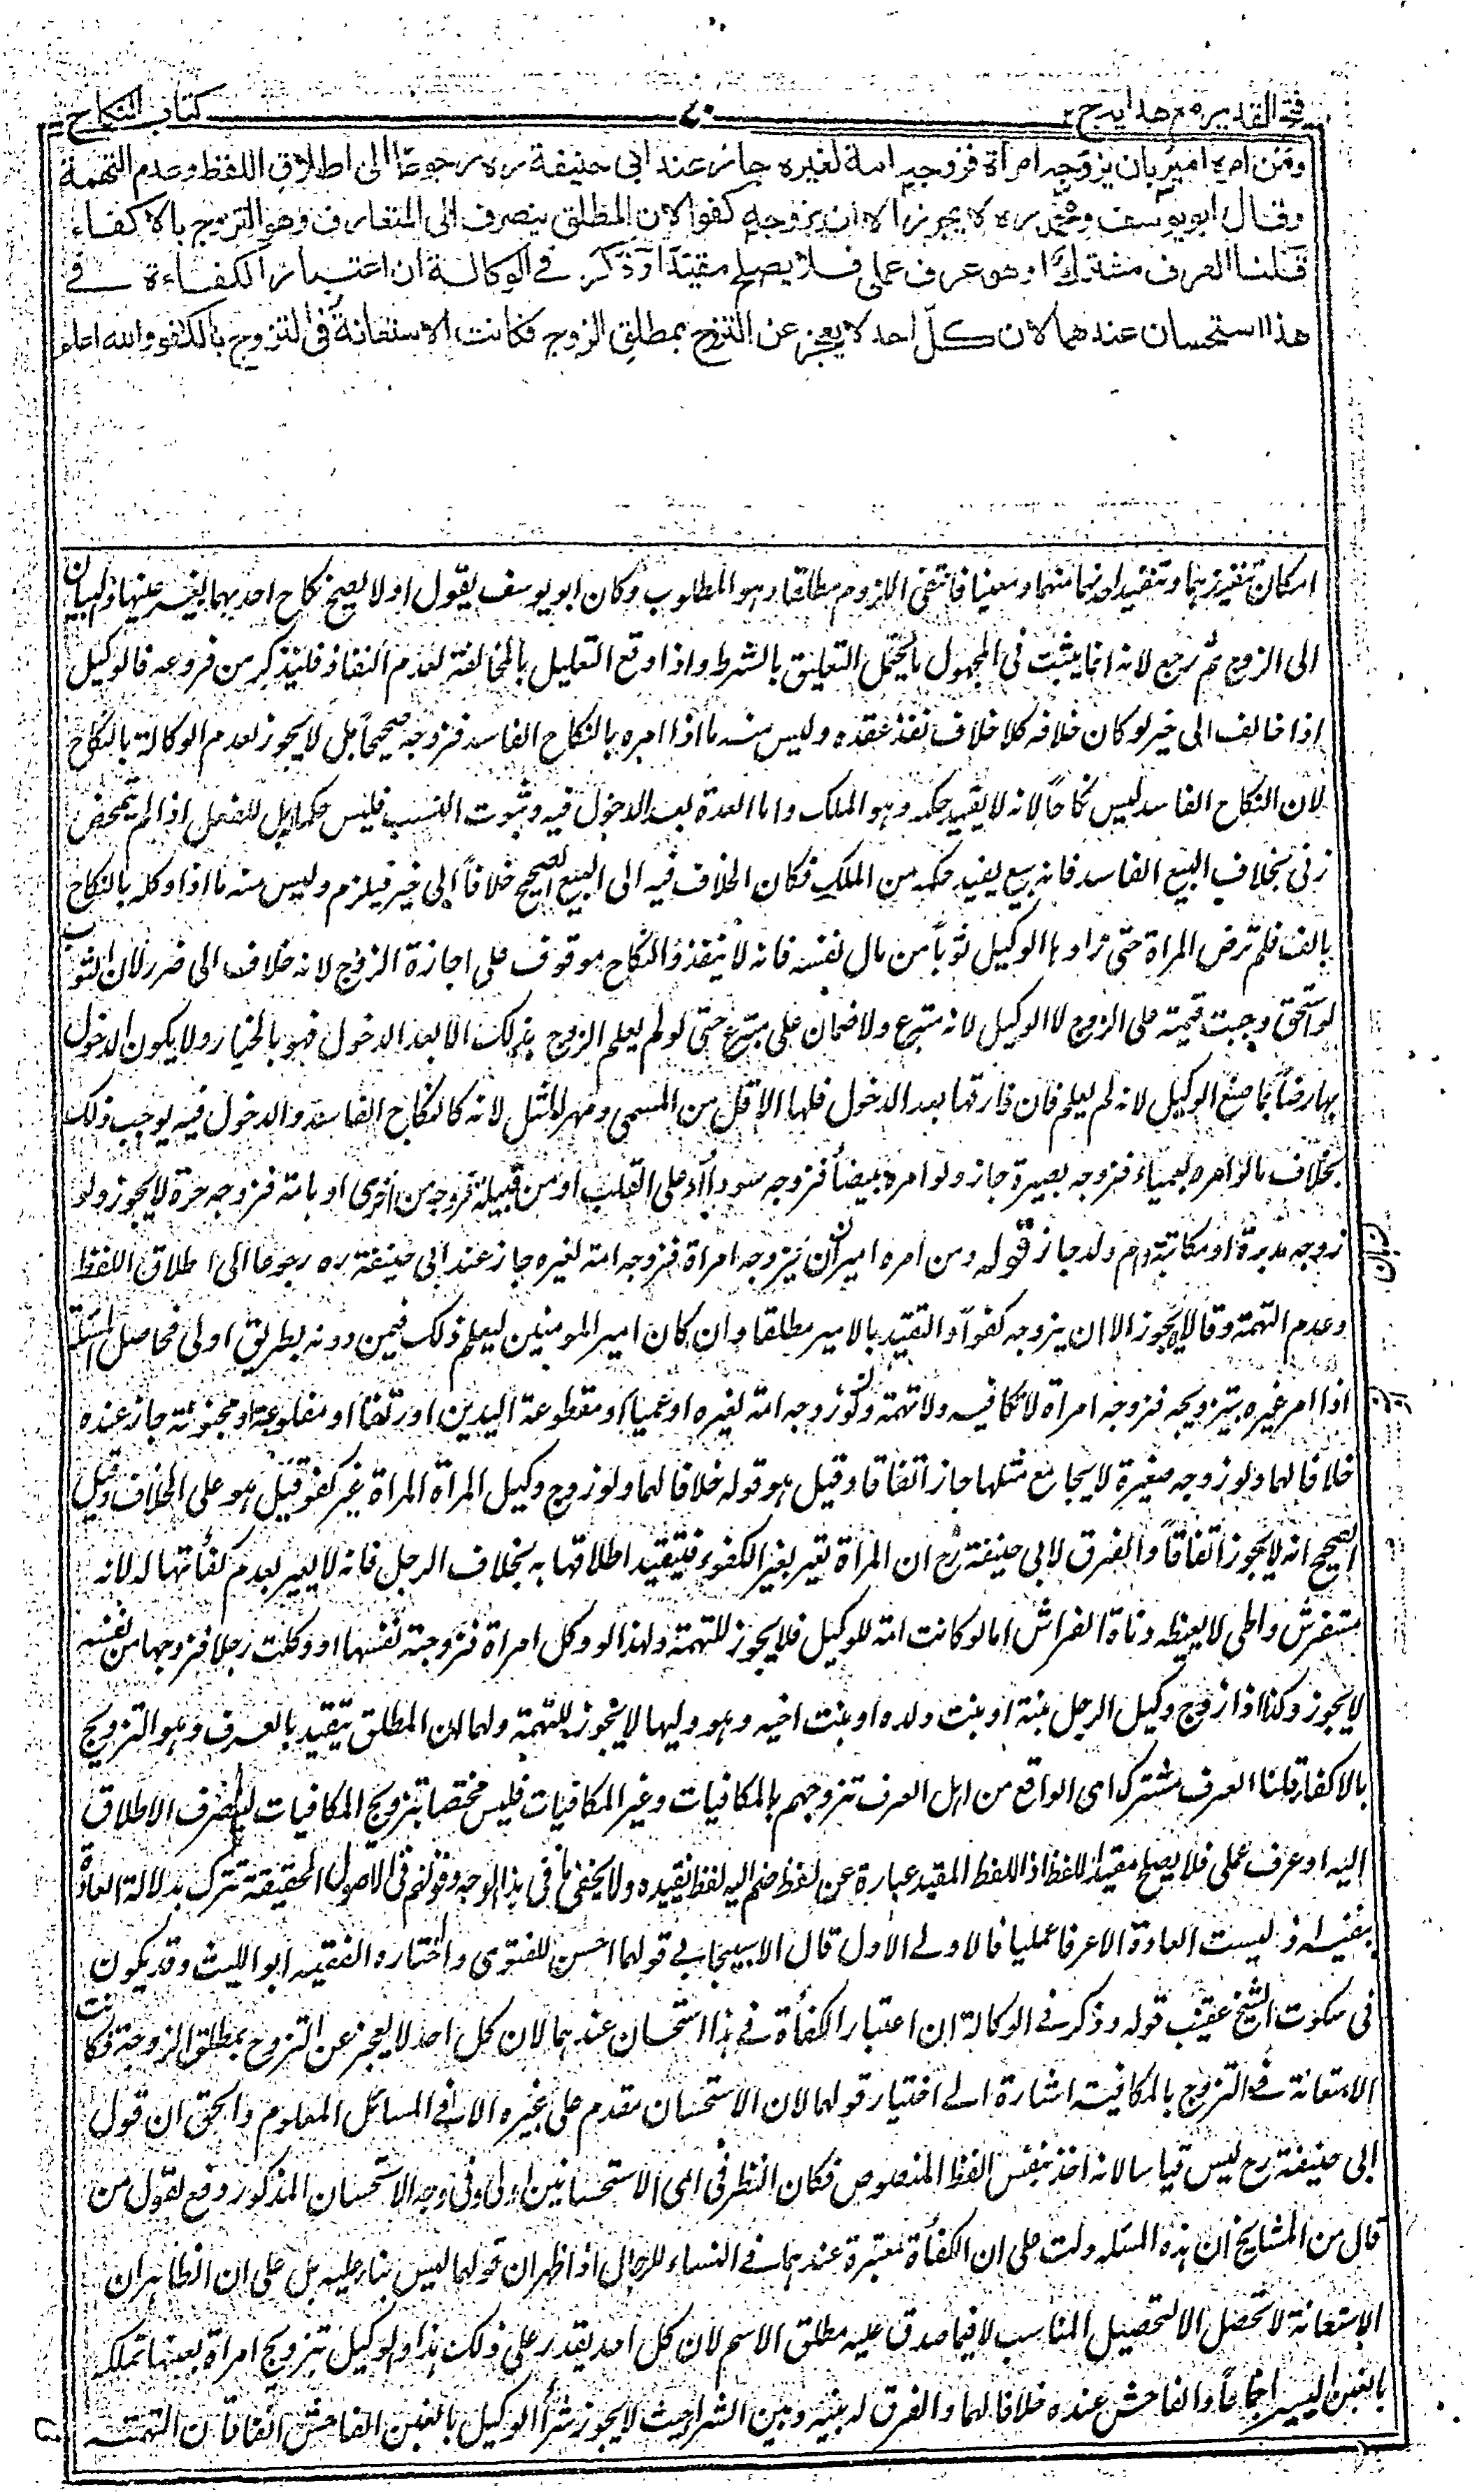 فتح القدير مع هدايه ج ٢
٤٠
كتاب النكاح
ومن امره امير بان يزوجه امرأة فزوجه امة لغيره جاز عند ابى حنيفة ره رجوعا الى اطلاق اللفظ وعدم التهمة
وقال ابو يوسف ومحمد ره لا يجوز الا ان يزوجه كفوا لان المطلق ينصرف الى المتعارف وهو التزوج بالاكفاء
قلنا العرف مشترك او هو عرف عملى فلا يصلح مقيدا وذكر في الوكالة ان اعتبار الكفاءة في
هذا استحسان عندهما لان كل احد لا يعجز عن التزوج بمطلق الزوج فكانت الاستعانة فى التزوج بالكفو والله اعلم
امكان تنفيذهما وتنفيذ احدهما منهما ومعينا فانتفى اللزوم مطلقا وهو المطلوب وكان ابو يوسف يقول اولا يصح نكاح احدهما بغير عينها والبيان
الى الزوج ثم رجع لانه انما يثبت فى المجهول ما يحتمل التعليق بالشرط واذا وقع التعليل بالمخالفة لعدم النفاذ فلنذكر من فروعه فالوكيل
اذا خالف الى خير لو كان خلافه كلا خلاف نفذ عقده وليس منه ما اذا امره بالنكاح الفاسد فزوجه صحيحا بل لا يجوز لعدم الوكالة بالنكاح
لان النكاح الفاسد ليس نكاحا لانه لا يفيد حكمه وهو الملك واما العدة بعد الدخول فيه وثبوت النسب فليس حكما له بل للفعل اذا لم يتمحض
زنى بخلاف البيع الفاسد فانه بيع يفيد حكمه من الملك فكان الخلاف فيه الى البيع الصحيح خلافا الى خير فيلزم وليس منه ما اذا وكله بالنكاح
بالف فلم ترض المرأة حتى زادها الوكيل ثوبا من مال نفسه فانه لا ينفذ والنكاح موقوف على اجازة الزوج لانه خلاف الى ضرر لان الثوب
لو استحق وجبت قيمته على الزوج لا الوكيل لانه متبرع ولا ضمان على متبرع حتى لو لم يعلم الزوج بذلك الا بعد الدخول فهو بالخيار ولا يكون الدخول
بها رضا بما صنع الوكيل لانه لم يعلم فان فارقها بعد الدخول فلها الاقل من المسمى ومهر المثل لانه كالنكاح الفاسد والدخول فيه يوجب ذلك
بخلاف ما لو امره بعمياء فزوجه بصيرة جاز ولو امره ببيضاء فزوجه سوداء او على القلب او من قبيلة فزوجه من اخرى او بامة فزوجه حرة لا يجوز ولو
زوجه مدبرة او مكاتبة او ام ولد جاز قوله ومن امره امير ان يزوجه امرأة فزوجه امة لغيره جاز عند ابى حنيفة ره رجوعا الى اطلاق اللفظ
وعدم التهمة وقالا لا يجوز الا ان يزوجه كفوا والتقييد بالامير مطلقا وان كان امير المومنين ليعلم ذلك فيمن دونه بطريق اولى فحاصل المسئلة
اذا امر غيره بتزويجه فزوجه امرأة لا تكافيه ولا تهمة ولو زوجه امة لغيره او عمياء او مقطوعة اليدين او رتقا او مفلوجة او مجنونة جاز عنده
خلافا لهما ولو زوجه صغيرة لا يجامع مثلها جاز اتفاقا وقيل هو قوله خلافا لهما ولو زوج وكيل المرأة المرأة غير كفو قيل هو على الخلاف وقيل
الصحيح انه لا يجوز اتفاقا والفرق لابى حنيفة رح ان المرأة تعير بغير الكفوء فيتقيد اطلاقها به بخلاف الرجل فانه لا يعير بعدم كفأتها له لانه
مستفرش واطى لا يغيظه دناءة الفراش اما لو كانت امة للوكيل فلا يجوز للتهمة ولهذا لو وكل امرأة فزوجته نفسها او وكلت رجلا فزوجها من نفسه
لا يجوز وكذا اذا زوج وكيل الرجل بنته او بنت ولده او بنت اخيه وهو وليها لا يجوز للتهمة ولهما ان المطلق يتقيد بالعرف وهو التزويج
بالاكفاء قلنا العرف مشترك اى الواقع من اهل العرف تزوجهم بالمكافيات وغير المكافيات فليس مختصا بتزويج المكافيات لينصرف الاطلاق
اليه او عرف عملى فلا يصلح مقيدا للفظ اذ اللفظ المقيد عبارة عن لفظ ضم اليه لفظ يقيده ولا يخفى ما فى هذا الوجه وقولهم فى الاصول الحقيقة تترك بدلالة العادة
ينفيه اذ ليست العادة الا عرفا عمليا فالاولى الاول قال الاسبيجابى قولهما احسن للفتوى واختاره الفقيه ابو الليث وقد يكون
فى سكوت الشيخ عقيب قوله وذكر فى الوكالة ان اعتبار الكفأة فى هذا استحسان عندهما لان كل احد لا يعجز عن التزوج بمطلق الزوجة فكانت
الاستعانة فى التزوج بالمكافية اشارة الى اختيار قولهما لان الاستحسان مقدم على غيره الا فى المسائل المعلوم والحق ان قول
ابى حنيفة رح ليس قياسا لانه اخذ بنفس اللفظ المنصوص فكان النظر فى اى الاستحسانين اولى وفى وجه الاستحسان المذكور دفع لقول من
قال من المشايخ ان هذه المسئلة دلت على ان الكفأة معتبرة عندهما فى النساء للرجال اذ اظهر ان قولهما ليس بناء عليه بل على ان الظاهر ان
الاستعانة لا تحصل الا لتحصيل المناسب لا فيما صدق عليه مطلق الاسم لان كل احد يقدر على ذلك هذا والوكيل بتزويج امرأة بعينها تملكه
بالغبن اليسير اجماعا والفاحش عنده خلافا لهما والفرق له بينه وبين الشراء حيث لا يجوز شراء الوكيل بالغبن الفاحش اتفاقا ان التهمة